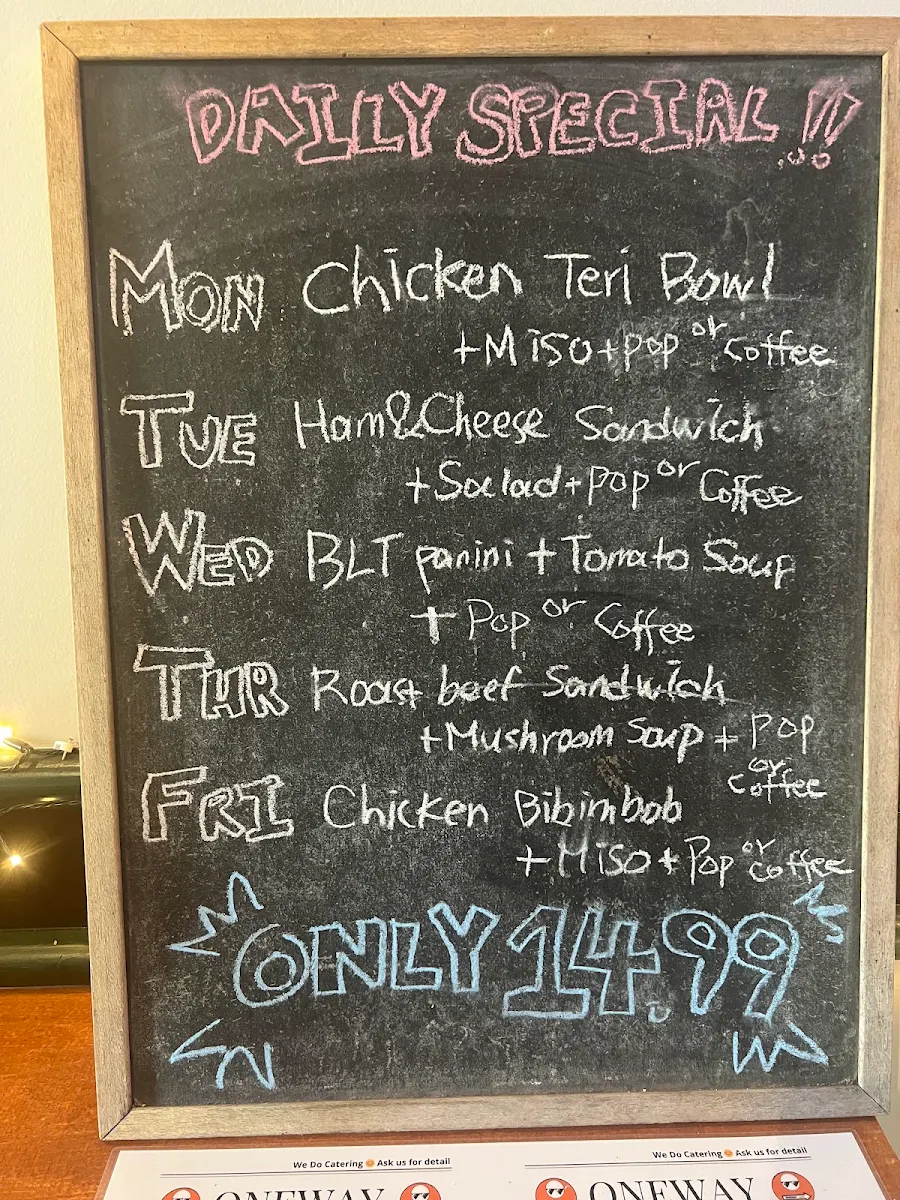 DAILY SPECIAL !!
MON Chicken Teri Bowl
+Miso+pop or coffee
TUE Ham&Cheese Sandwich
+Salad+pop or Coffee
WED BLT panini +Tomato Soup
+ Pop or Coffee
THR Roast beef Sandwich
+Mushroom Soup + Pop
or
coffee
FRI Chicken Bibimbob
+Miso+Pop or coffee
ONLY 14.99
We Do Catering Ask us for detail
We Do Catering Ask us for detail
ONEWAY
ONEWAY